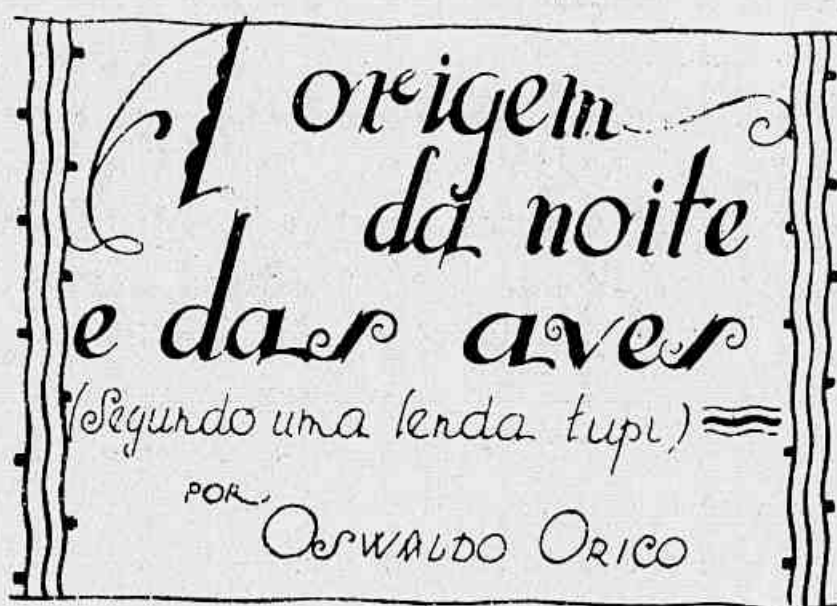 A origem
da noite
e das aves
(Segundo uma lenda tupi)
POR
OSWALDO ORICO